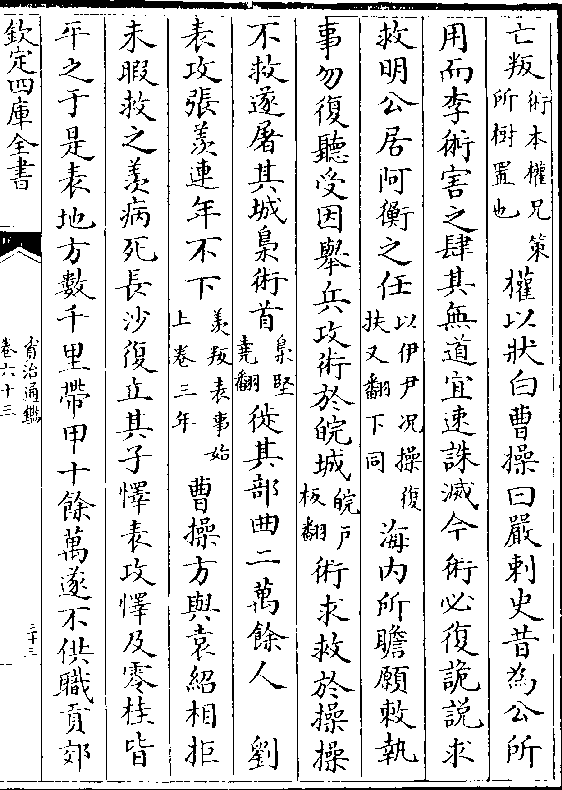 亡叛術本權兄策所樹置也權以狀白曹操曰嚴刺史昔為公所
用而李術害之肆其無道宜速誅滅今術必復詭說求
救明公居阿衡之任以伊尹况操復扶又翻下同海内所瞻願敕執
事勿復聽受因舉兵攻術於皖城皖戶板翻術求救於操操
不救遂屠其城梟術首梟堅堯翻徙其部曲二萬餘人　劉
表攻張羡連年不下羡叛表事始上卷三年曹操方與袁紹相拒
未暇救之羡病死長沙復立其子懌表攻懌及零桂皆
平之于是表地方數千里帶甲十餘萬遂不供職貢郊
欽定四庫全書
資治通鑑
卷六十三
二十三